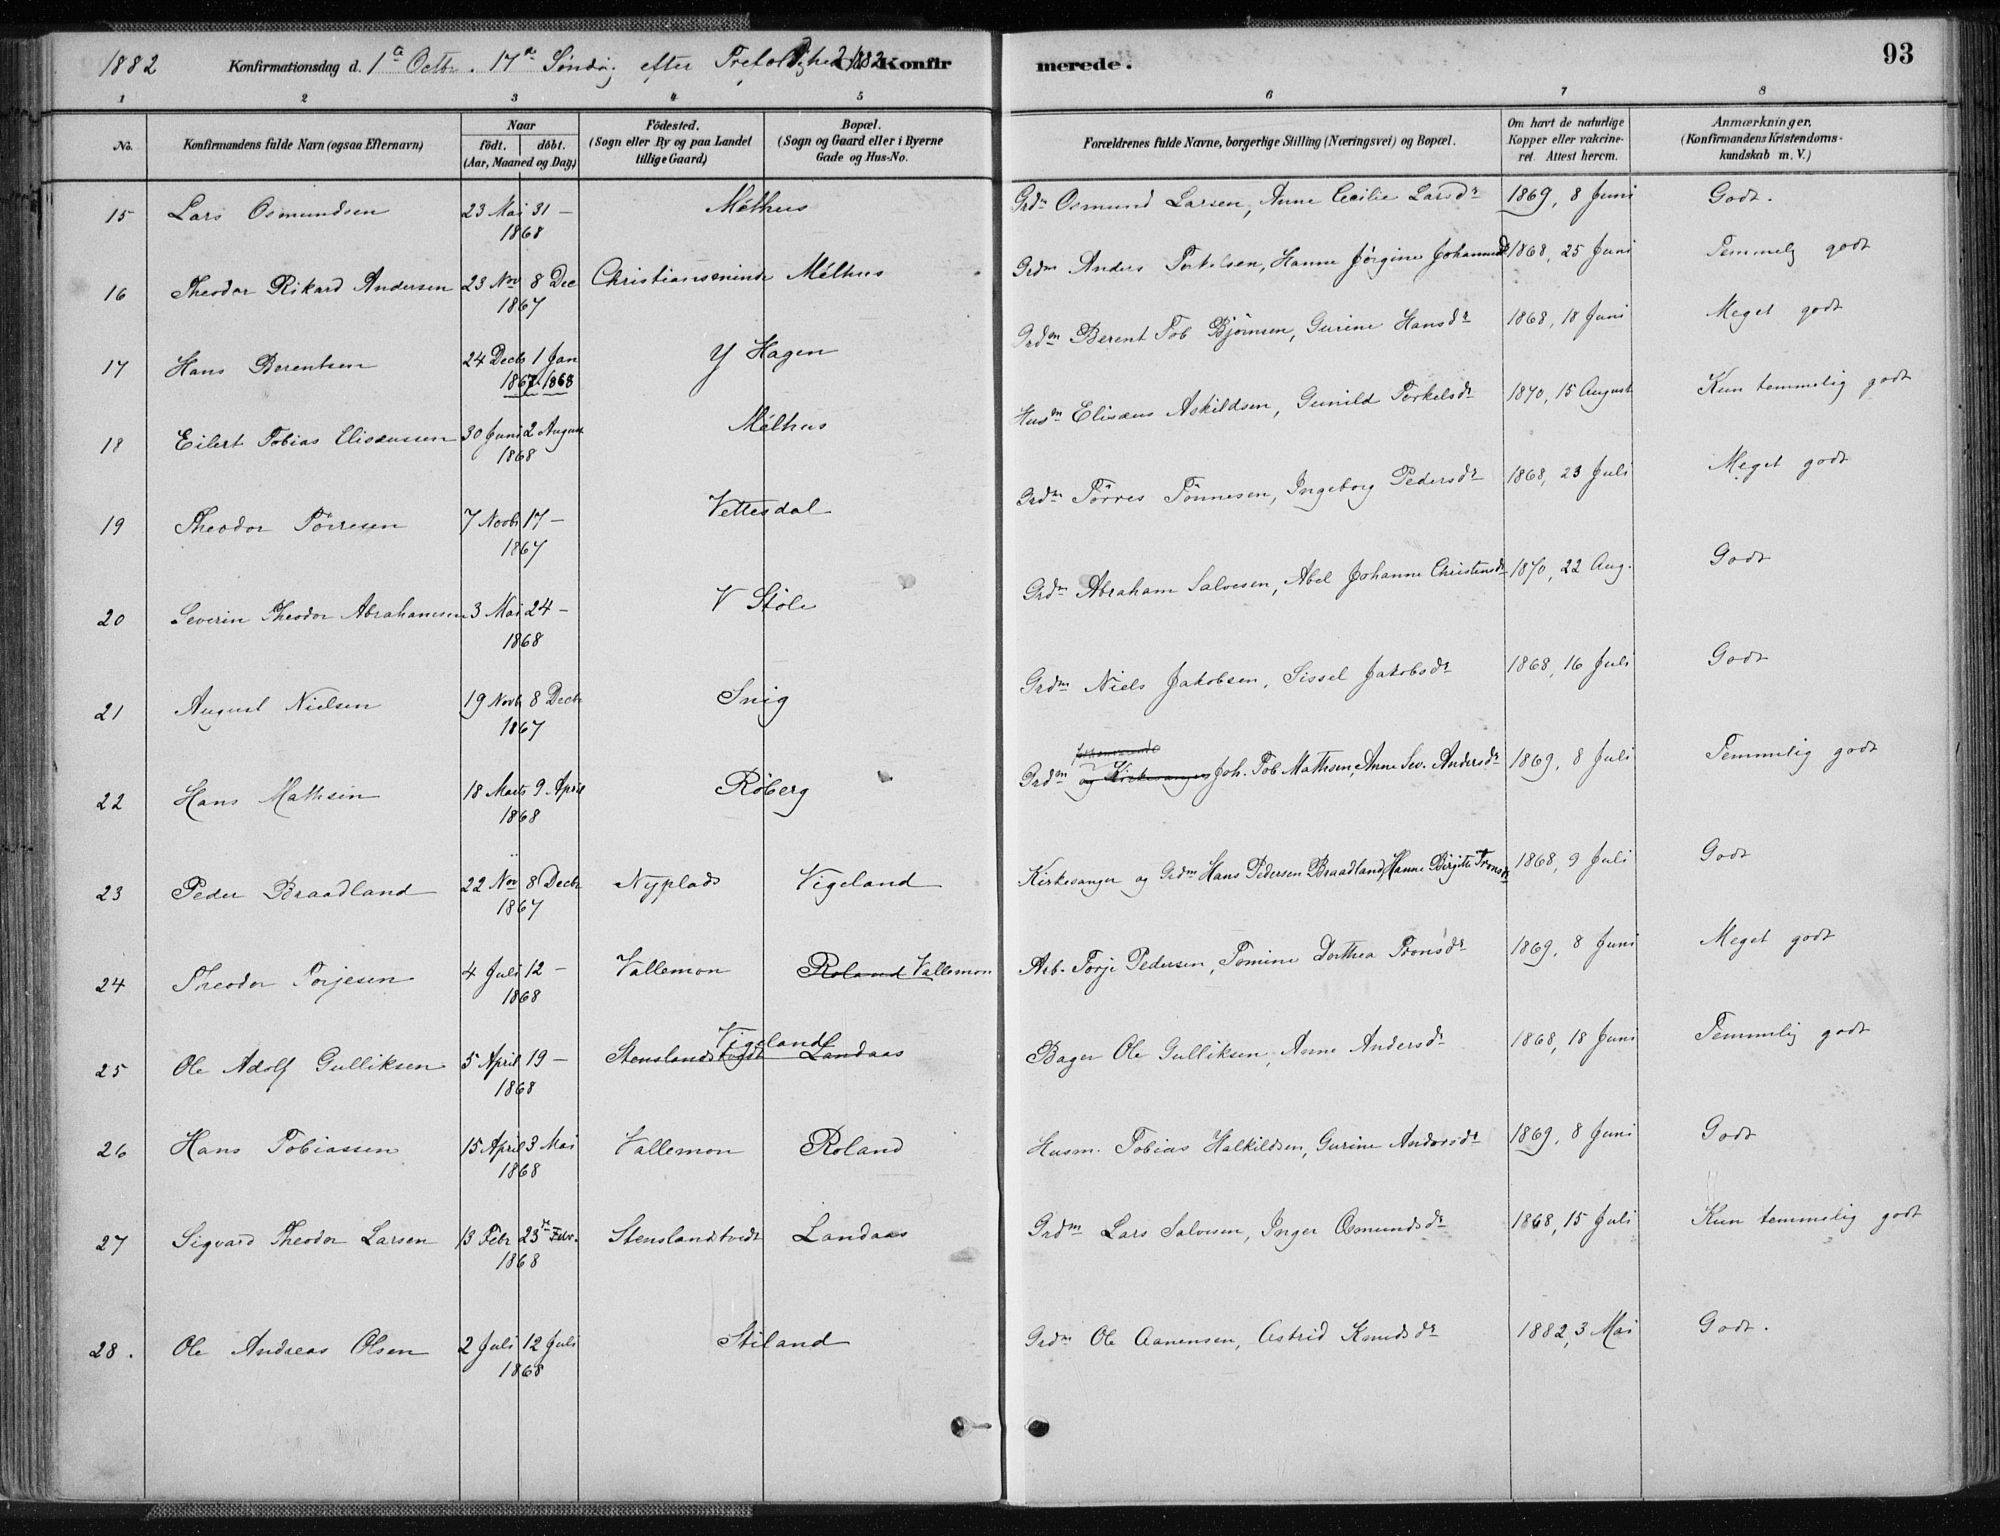 1882 Konfirmationsdag d. 1ª Octbr. 17de Søndag efter Trefoldighed 1882 Konfir
merede. 93
1 2 3 4 5 6 7 8
No. Konfirmandens fulde Navn (ogsaa Efternavn) Naar født. døbt. (Aar, Maaned og Dag) Fødested. (Sogn eller By og paa Landet tillige Gaard) Bopæl. (Sogn og Gaard eller i Byerne Gade og Hus-No. Forældrenes fulde Navne, borgerlige Stilling (Næringsvei) og Bopæl. Om havt de naturlige Kopper eller vakcineret. Attest herom. Anmærkninger. (Konfirmandens Kristendomskundskab m. V.)
15 Lars Osmundsen 23 Mai 31 – 1868 Mélhus Grdm Osmund Larsen, Anne Cecilie Larsdr 1869, 8 Juni Godt.
16 Theodor Rikard Andersen 23 Nov 8 Dec 1867 Christiansminde Mélhus Grdm Anders Torkelsen, Hanne Jørgine Johannesd 1868, 25 Juni Temmelig godt
17 Hans Berentsen 24 Decb 1 Jan 1867. 1868 Y Hagen Grdm Berent Tob Bjørnsen, Gurine Hansdr 1868, 18 Juni Meget godt
18 Eilert Tobias Elisæussen 30 Juni 2 August 1868 Mélhus Husm Elisæus Askildsen, Gunild Torkelsdr 1870, 15 August Kun temmelig godt
19 Theodor Tørresen 7 Novb 17 – 1867 Vettesdal Grdm Tørres Tønnesen, Ingeborg Pedersdr 1868, 23 Juli Meget godt
20 Severin Theodor Abrahamsen 3 Mai 24 – 1868 V Støle Grdm Abraham Salvesen, Abel Johanne Christensdr 1870, 22 Aug. Godt
21 August Nielsen 19 Novb 8 Decb 1867 Snig Grdm Niels Jakobsen, Sissel Jakobsdr 1868, 16 Juli Godt
22 Hans Mathsen 18 Marts 9. April 1868 Røberg Grdm og Kirkesanger Joh. Tob Mathsen, Anne Sev. Andersdr 1869, 8 Juli Temmelig godt
23 Peder Braadland 22 Nov 8 Decb 1867 Nyplads Vigeland Kirkesanger og Grdm Hans Pedersen Braadland, Hanne Birgitte Tronsdr 1868, 9 Juli Godt
24 Theodor Torjesen 4 Juli 12 – 1868 Vallemon Roland Vallemon Arb. Torje Pedersen, Tomine Dorthea Tronsdr 1869, 8 Juni Meget godt
25 Ole Adolf Gulliksen 5 April 19 – 1868 Vigeland Stenslandstvedt Landaas Bager Ole Gulliksen, Anne Andersdr 1868, 18 Juni Temmelig godt
26 Hans Tobiassen 15 April 3 Mai 1868 Vallemon Roland Husm. Tobias Halkildsen, Gurine Andersdr 1869, 8 Juni Godt
27 Sigvard Theodor Larsen 13 Febr 23de Febr. 1868 Stenslandtvedt Landaas Grdm Lars Salvesen, Inger Osmundsdr 1868, 15 Juli Kun temmelig godt
28. Ole Andreas Olsen 2 Juli 12 Juli 1868 Stiland Grdm Ole Aanensen, Astrid Knudsdr 1882, 3 Mai Godt.